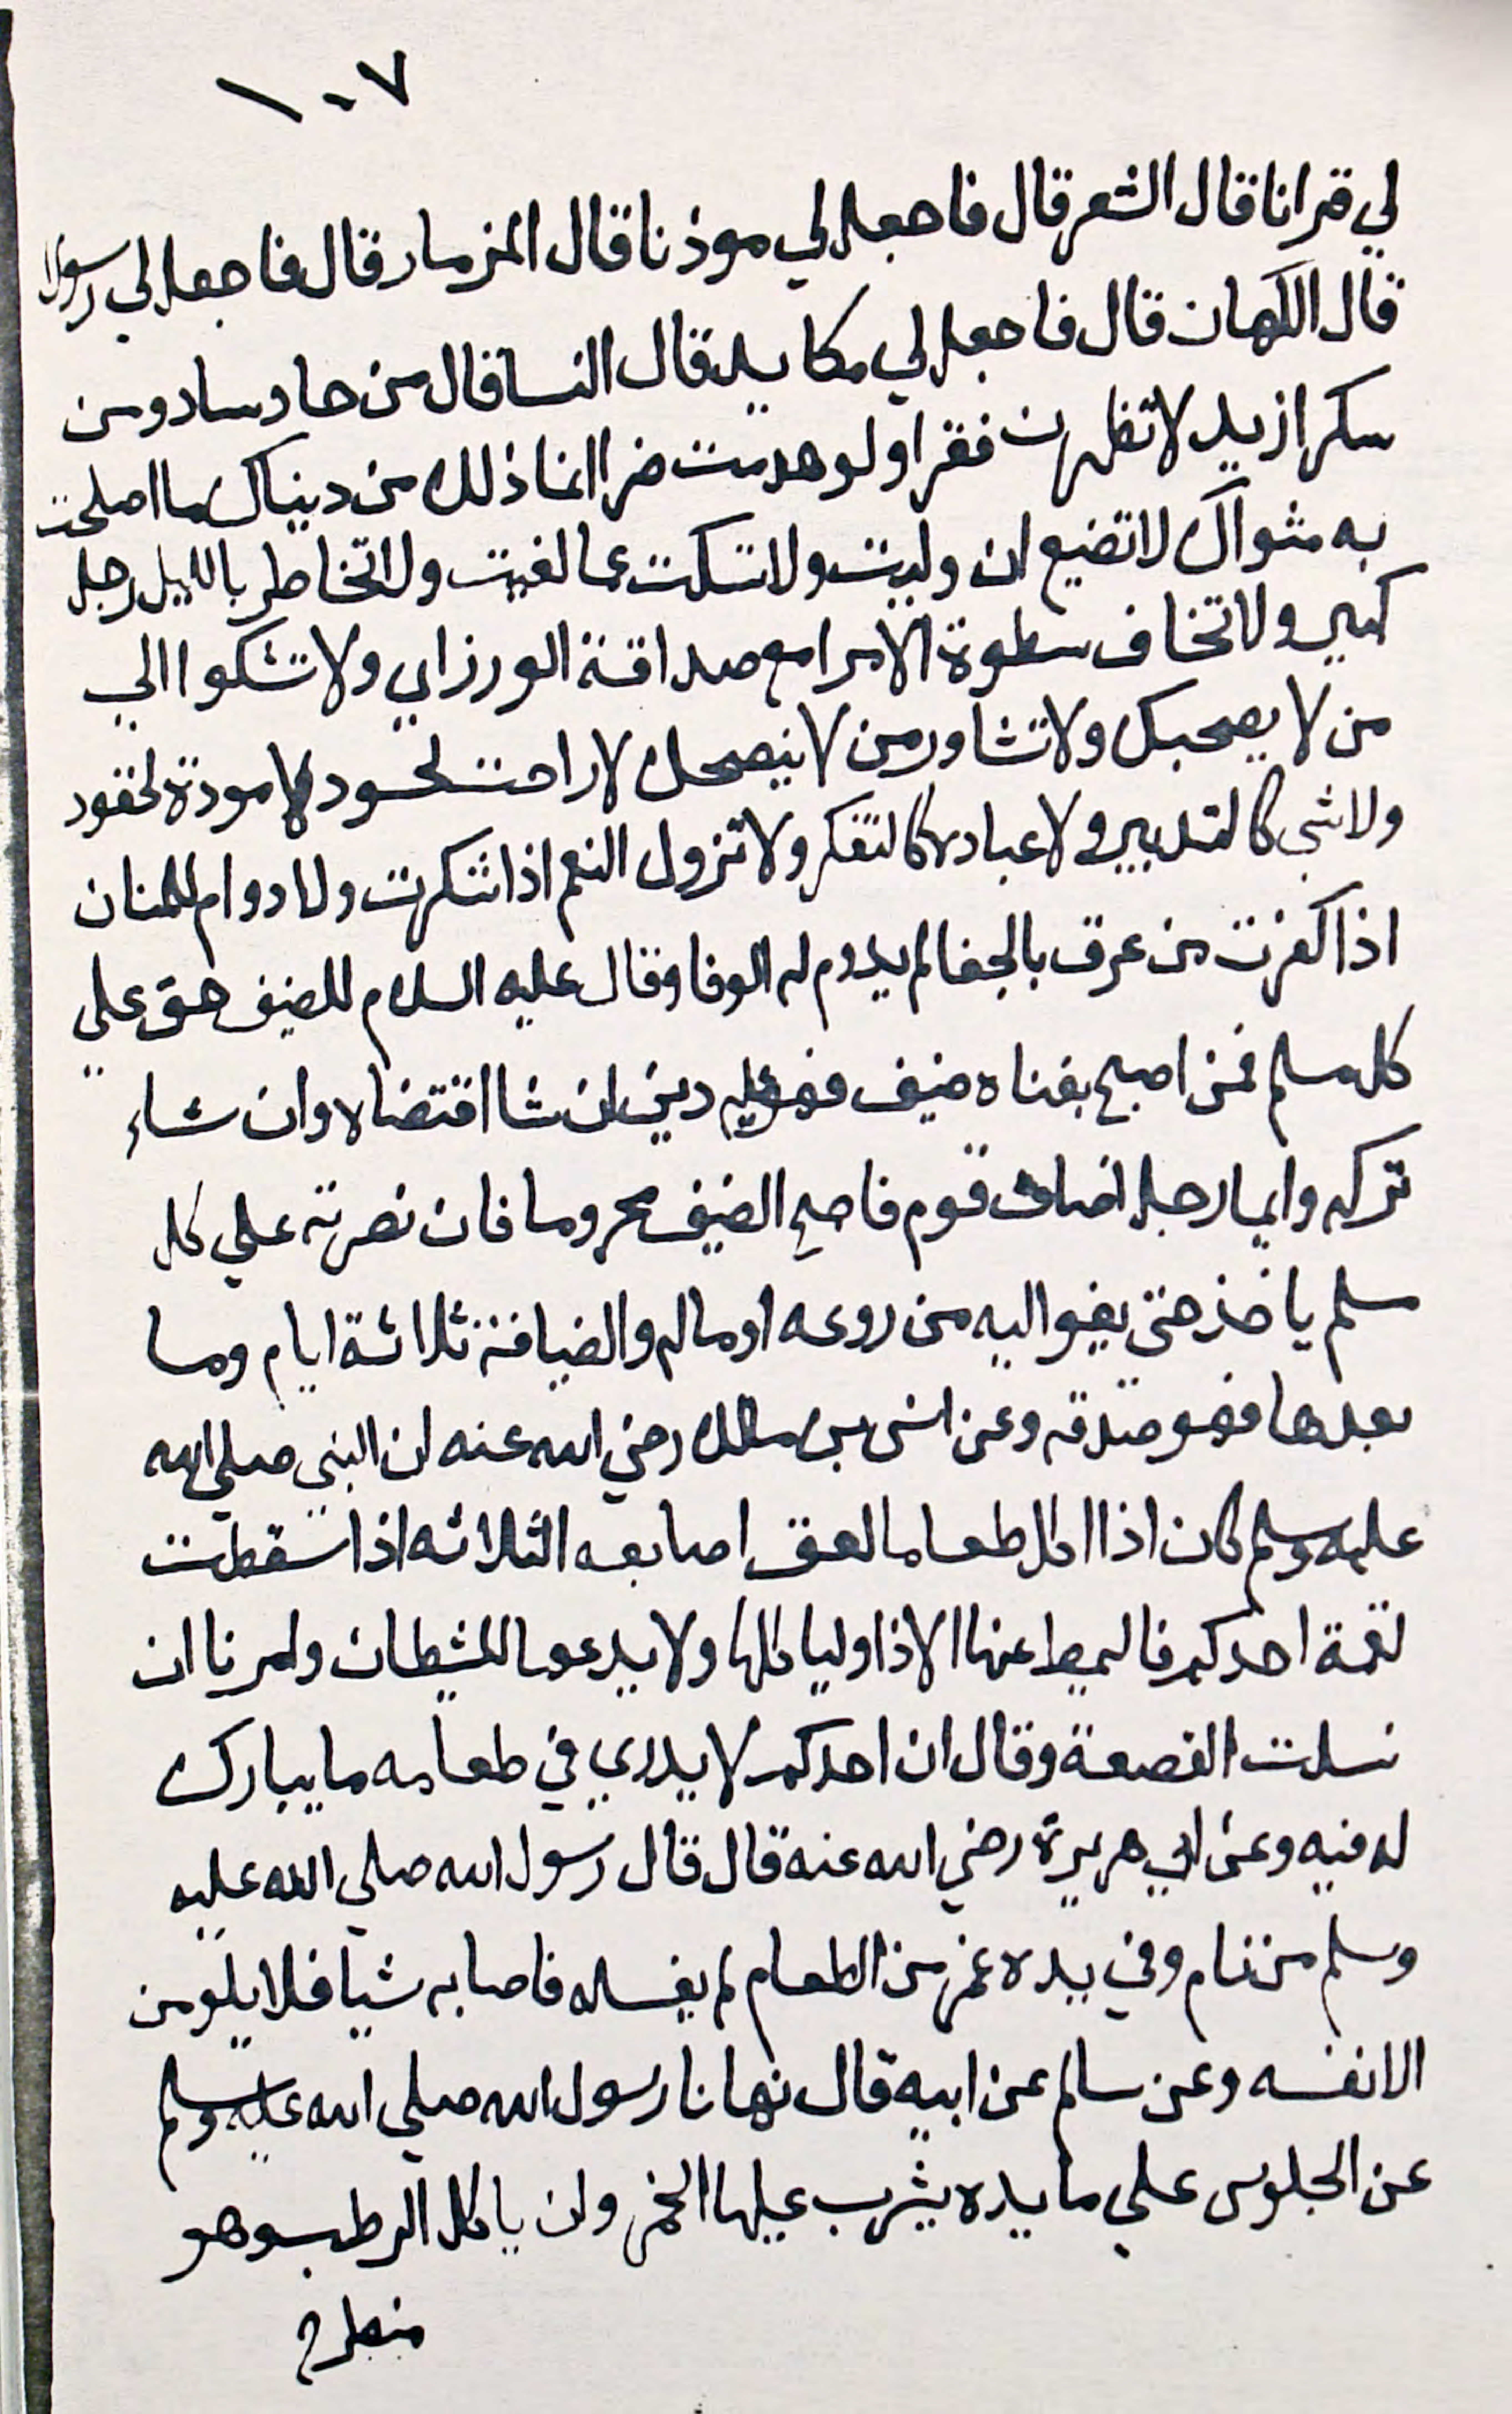 ١٠٧
لي قرانا قال الشعر قال فاجعل لي موذنا قال المزمار قال فاجعل لي رسولا
قال الكهان قال فاجعل لي مكايد قال النسا قال من حاد ساد ومن
سكر ازيد لا تظهرن فقرا ولو هدمت ضرا انما ذلك من دينياك ما اصلحت
به مثواك لا تضيع ان وليت ولا تسكت عما لفيت ولا تخاطر بالليل رجل
كبير ولا تخاف سطوة الامرا مع صداقة الورزاي ولا تشكوا الي
من لا يصحبك ولا تشاور من لا ينصحك لا راحت لحسود ولا مودة لحقود
ولا شي كالتدبير ولا عباده كالتفكر ولا تزول النعم اذا شكرت ولا دوام للمنان
اذا كفرت من عرف بالجفا لم يدوم له الوفا وقال عليه السلام للضيف حق علي
كل مسلم فمن اصبح بفناه ضيف فهو عليه دين ان شا اقتضاه وان شاء
تركه وايما رجل اضاف قوم فاصبح الضيف محروما فان نصرته علي كل
مسلم ياخذ حتي يفوا اليه من زوعه او ماله والضيافة ثلاثة ايام وما
بعدها فهو صدقه وعن انس بن مالك رضي الله عنه ان النبي صلي الله
عليه وسلم كان اذا اكل طعاما لعق اصابعه الثلاثه اذا سقطت
لقمة احدكم فاليمط عنها الاذا وليا كلها ولا يدعها للشيطان وامرنا ان
نسلت القصعة وقال ان احدكم لا يدري في طعامه ما يبارك
له فيه وعن ابي هريرة رضي الله عنه قال قال رسول الله صلي الله عليه
وسلم من نام وفي يده غمر من الطعام لم يغسله فاصابه شيا فلا يلومن
الا نفسه وعن سالم عن ابيه قال نهانا رسول الله صلي الله عليه وسلم
عن الجلوس علي مايده يشرب عليها الخمر وان ياكل الرطب وهو
منبطح